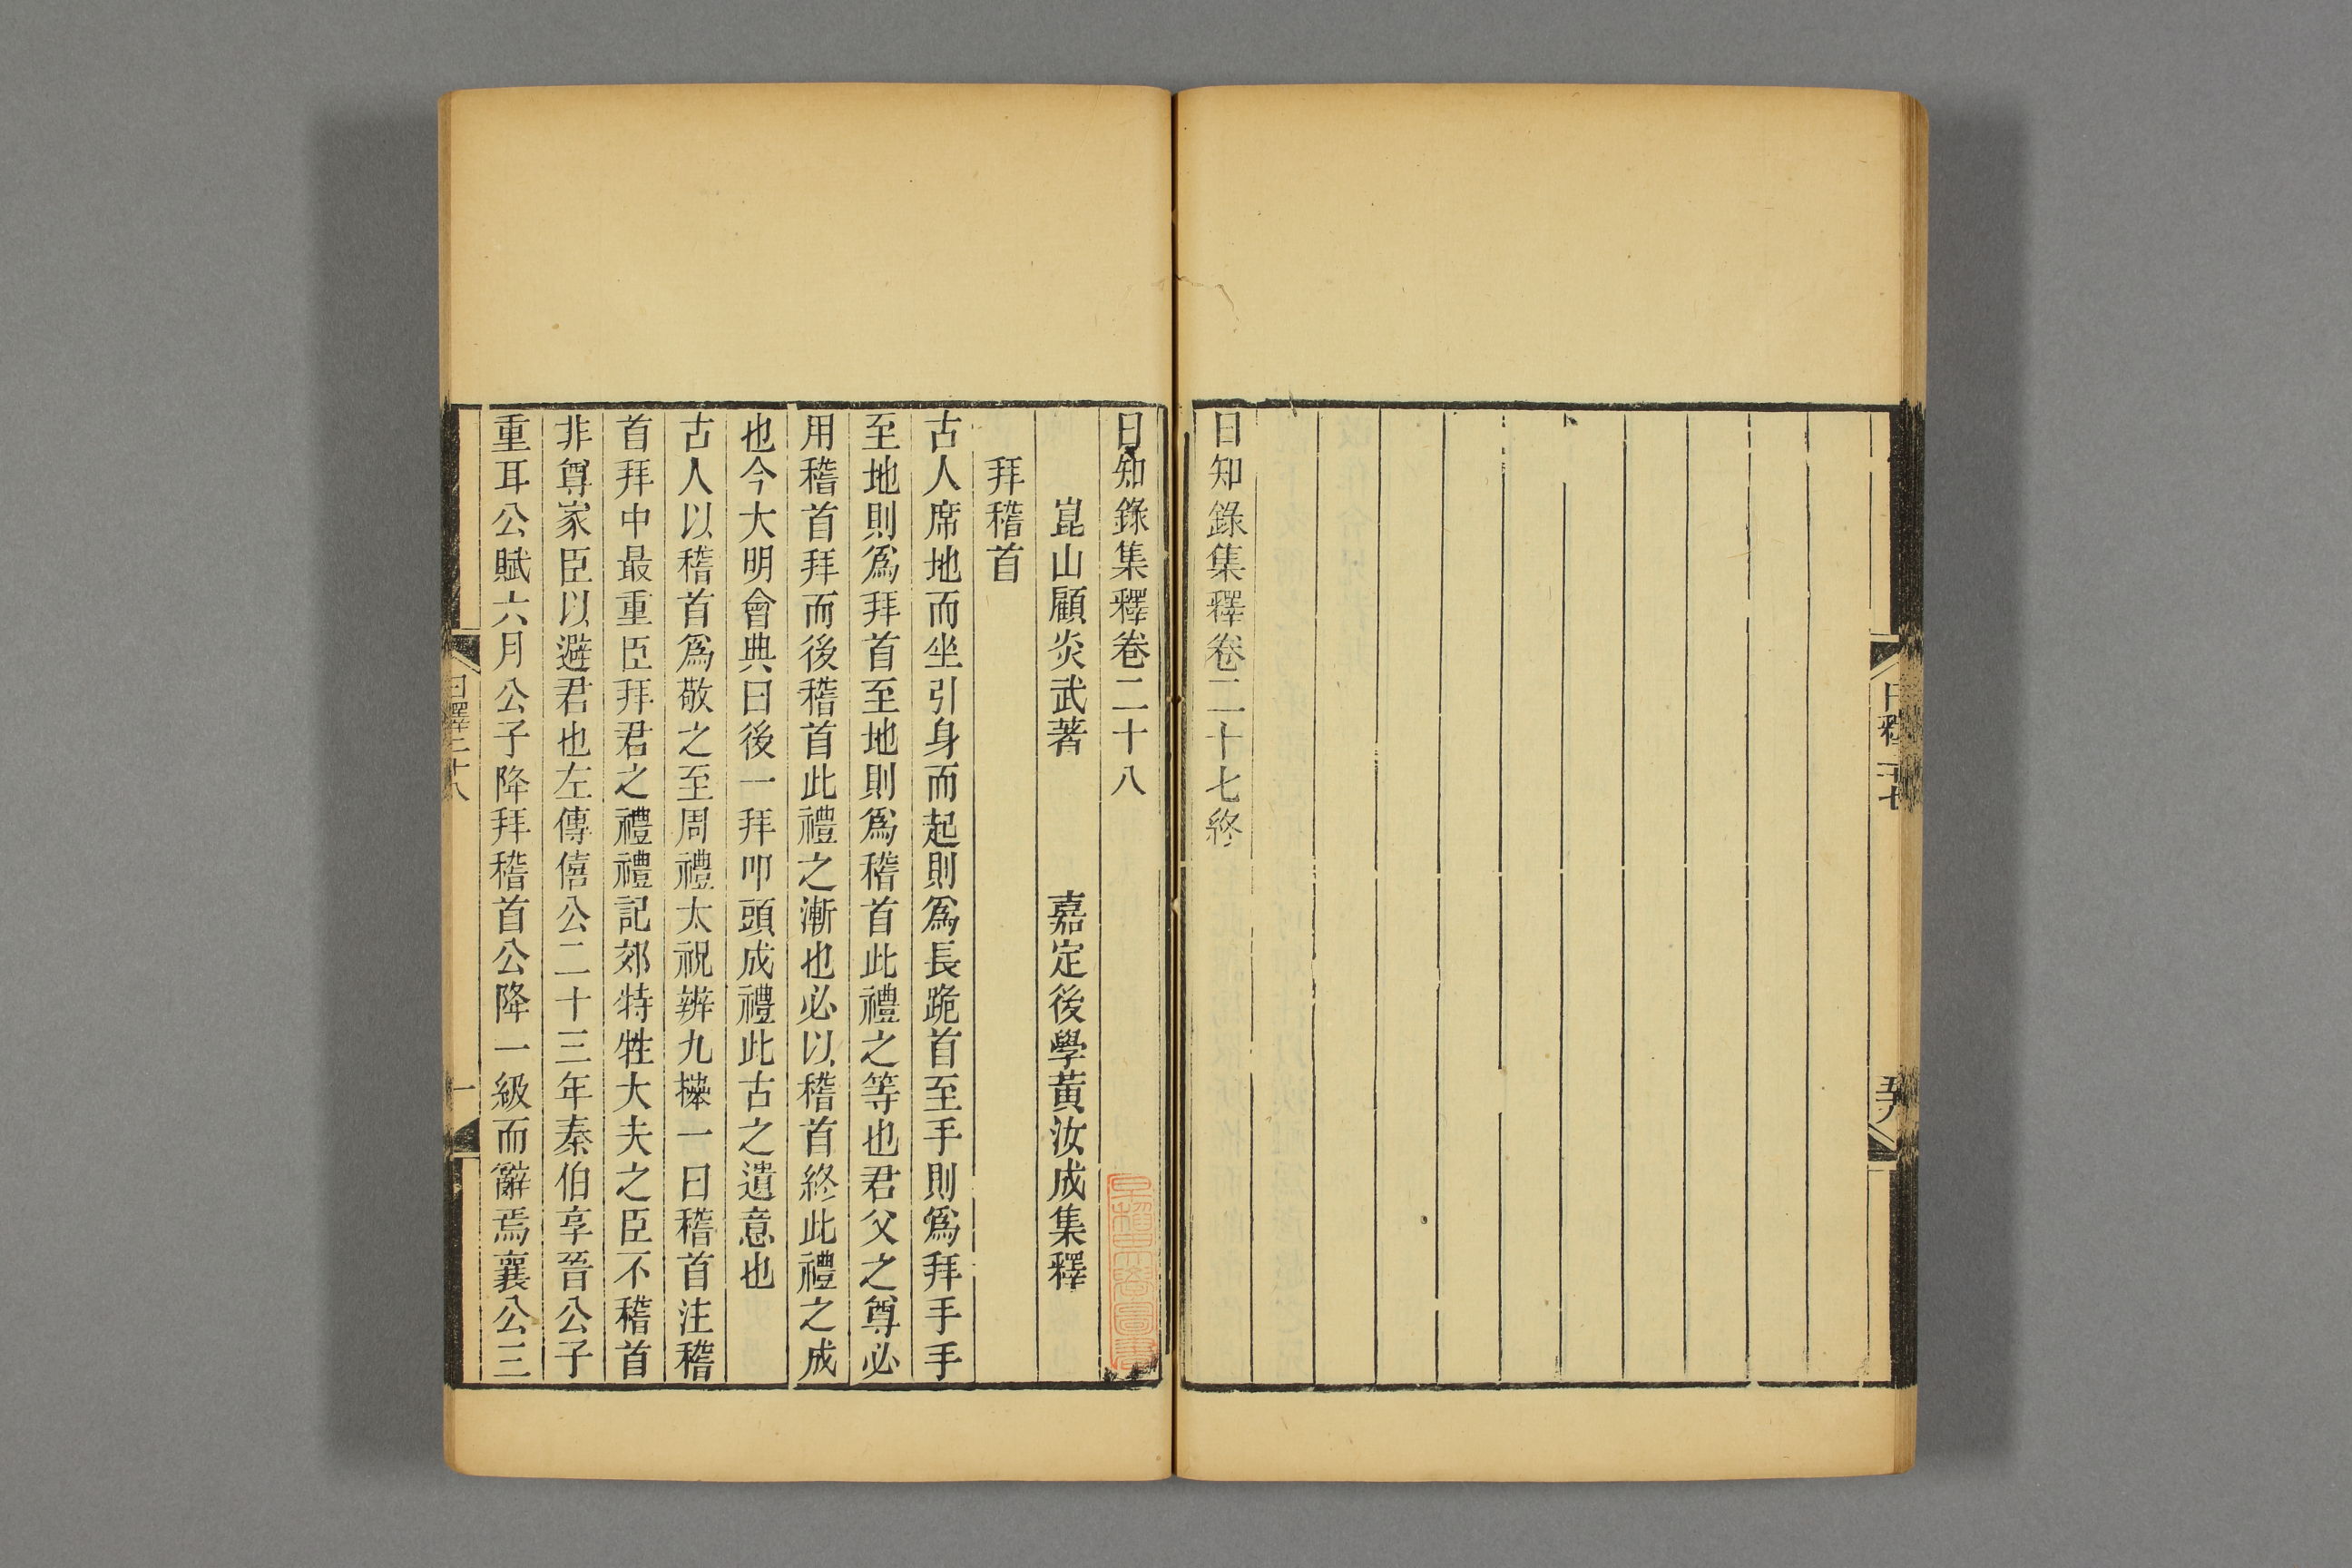 日知錄集釋卷二十七終
日釋 二十七
五十八
日知錄集釋卷二十八
崑山顧炎武著 嘉定後學黃汝成集釋
拜稽首
古人席地而坐引身而起則爲長跪首至手則爲拜手手
至地則爲拜首至地則爲稽首此禮之等也君父之尊必
用稽首拜而後稽首此禮之漸也必以稽首終此禮之成
也今大明會典曰後一拜叩頭成禮此古之遺意也
古人以稽首爲敬之至周禮太祝辨九𢷎一曰稽首注稽
首拜中最重臣拜君之禮禮記郊特牲大夫之臣不稽首
非尊家臣以避君也左傳僖公二十三年秦伯享晉公子
重耳公賦六月公子降拜稽首公降一級而辭焉襄公三
日釋二十八
一